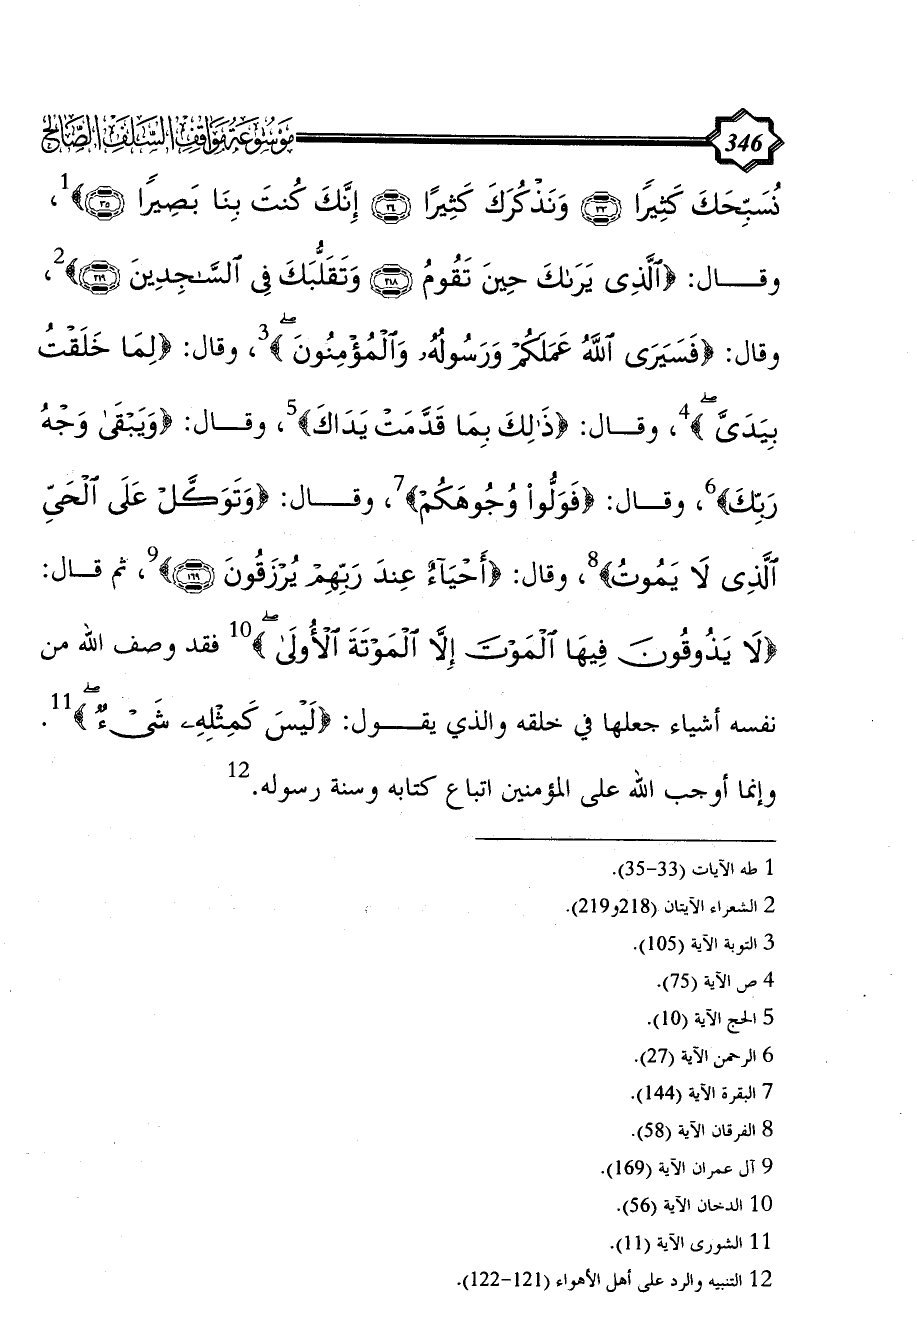 346 موسوعة مواقف السلف الصالح
نُسَبِّحَكَ كَثِيرًا ﴿٣٣﴾ وَنَذْكُرَكَ كَثِيرًا ﴿٣٤﴾ إِنَّكَ كُنتَ بِنَا بَصِيرًا ﴿٣٥﴾﴾1،
وقـــال: ﴿ٱلَّذِى يَرَىٰكَ حِينَ تَقُومُ ﴿٢١٨﴾ وَتَقَلُّبَكَ فِى ٱلسَّـٰجِدِينَ ﴿٢١٩﴾﴾2،
وقال: ﴿فَسَيَرَى ٱللَّهُ عَمَلَكُمْ وَرَسُولُهُۥ وَٱلْمُؤْمِنُونَۖ﴾3، وقال: ﴿لِمَا خَلَقْتُ
بِيَدَىَّۖ﴾4، وقـــال: ﴿ذَٰلِكَ بِمَا قَدَّمَتْ يَدَاكَ﴾5، وقـــال: ﴿وَيَبْقَىٰ وَجْهُ
رَبِّكَ﴾6، وقـــال: ﴿فَوَلُّوا۟ وُجُوهَكُمْ﴾7، وقـــال: ﴿وَتَوَكَّلْ عَلَى ٱلْحَىِّ
ٱلَّذِى لَا يَمُوتُ﴾8، وقال: ﴿أَحْيَآءٌ عِندَ رَبِّهِمْ يُرْزَقُونَ ﴿١٦٩﴾﴾9، ثم قـــال:
﴿لَا يَذُوقُونَ فِيهَا ٱلْمَوْتَ إِلَّا ٱلْمَوْتَةَ ٱلْأُولَىٰۖ﴾10 فقد وصف الله من
نفسه أشياء جعلها في خلقه والذي يقـــول: ﴿لَيْسَ كَمِثْلِهِۦ شَىْءٌۖ﴾11.
وإنما أوجب الله على المؤمنين اتباع كتابه وسنة رسوله.12
1 طه الآيات (33-35).
2 الشعراء الآيتان (218و219).
3 التوبة الآية (105).
4 ص الآية (75).
5 الحج الآية (10).
6 الرحمن الآية (27).
7 البقرة الآية (144).
8 الفرقان الآية (58).
9 آل عمران الآية (169).
10 الدخان الآية (56).
11 الشورى الآية (11).
12 التنبيه والرد على أهل الأهواء (121-122).